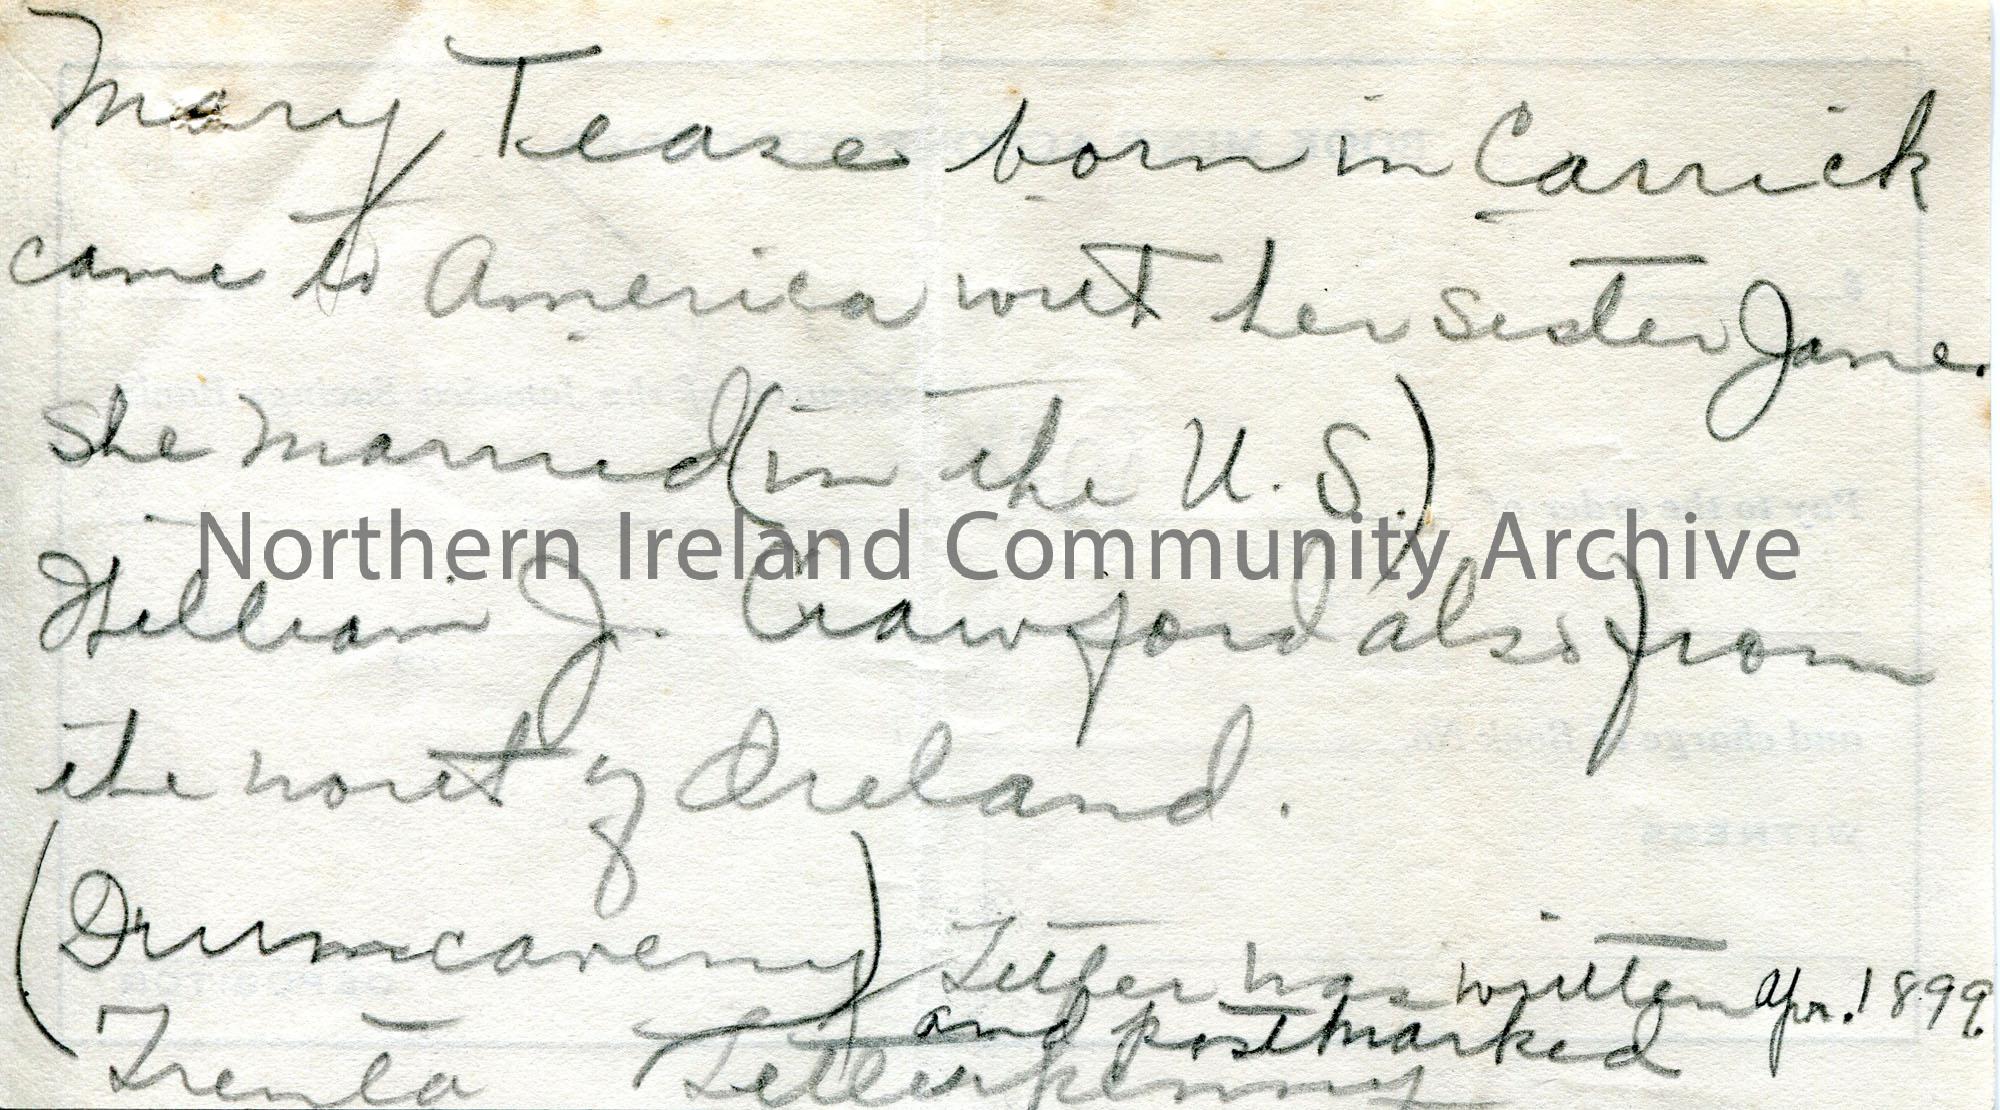 Mary Tease born in Carrick
came to America wit her sister Jane.
She married (in the U.S.)
Northern Ireland Community Archive
William J. Crawford also from
the nort of Ireland.
(Drumcaveny) Letter was written Apr. 1899.
and postmarked
Trenta Letterkenny